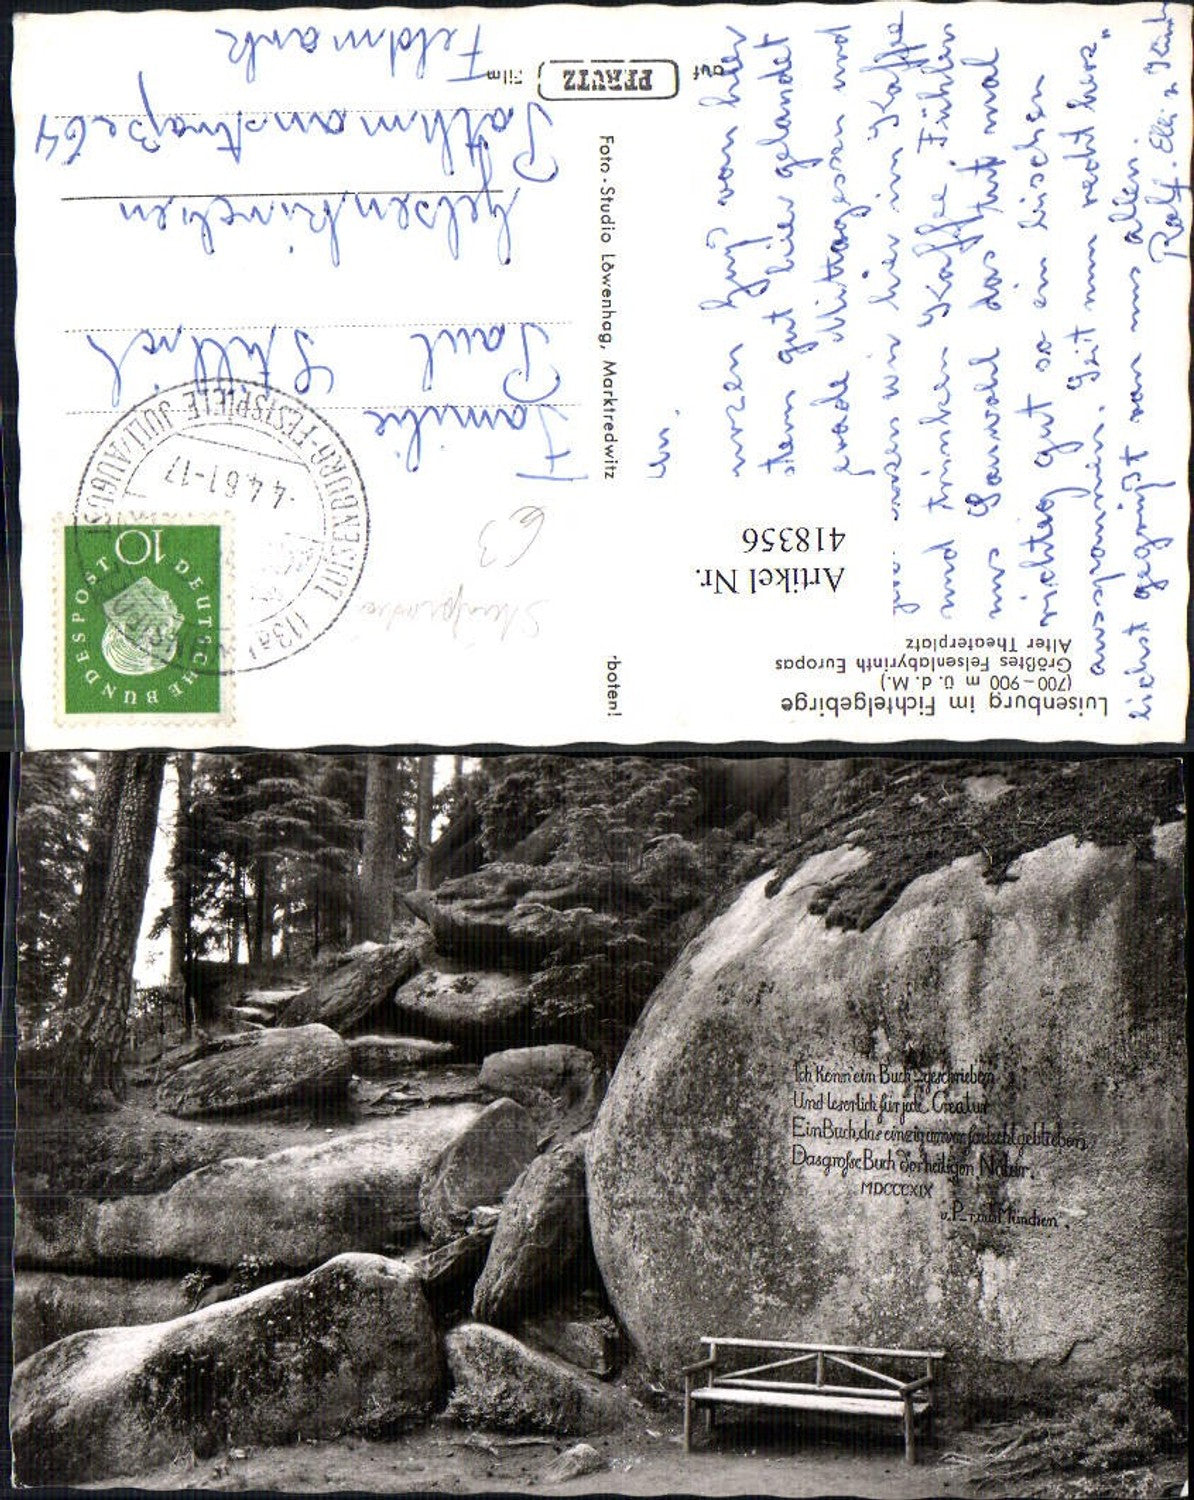 Luisenburg im Fichtelgebirge
(700–900 m ü. d. M.)
Größtes Felsenlabyrinth Europas
Alter Theaterplatz
Artikel Nr.
418356
-boten!
Foto - Studio Löwenhag, Marktredwitz
auf PERUTZ Film
DEUTSCHE BUNDESPOST
10
LUISENBURG-FESTSPIELE JULI/AUGUST
(13a)
-4.4.61-17
Familie
Paul
Gelsenkirchen
Pothmannstraße 64
Feldmark
€3
von hier
gut hier gelandet
Mittagessen und
wir hier im Kaffee
und trinken Kaffee. Fühlen
uns sauwohl das tut mal
richtig gut so ein bischen
ausspannen. Seit nun recht herz„
lichst gegrüßt von uns allen.
Rolf. Elli u.
Ich kenn ein Buch geschrieben
Und leserlich für jede Creatur
Ein Buch, das einzig geblieben,
Das grosse Buch der heiligen Natur.
MDCCCXIX
München.